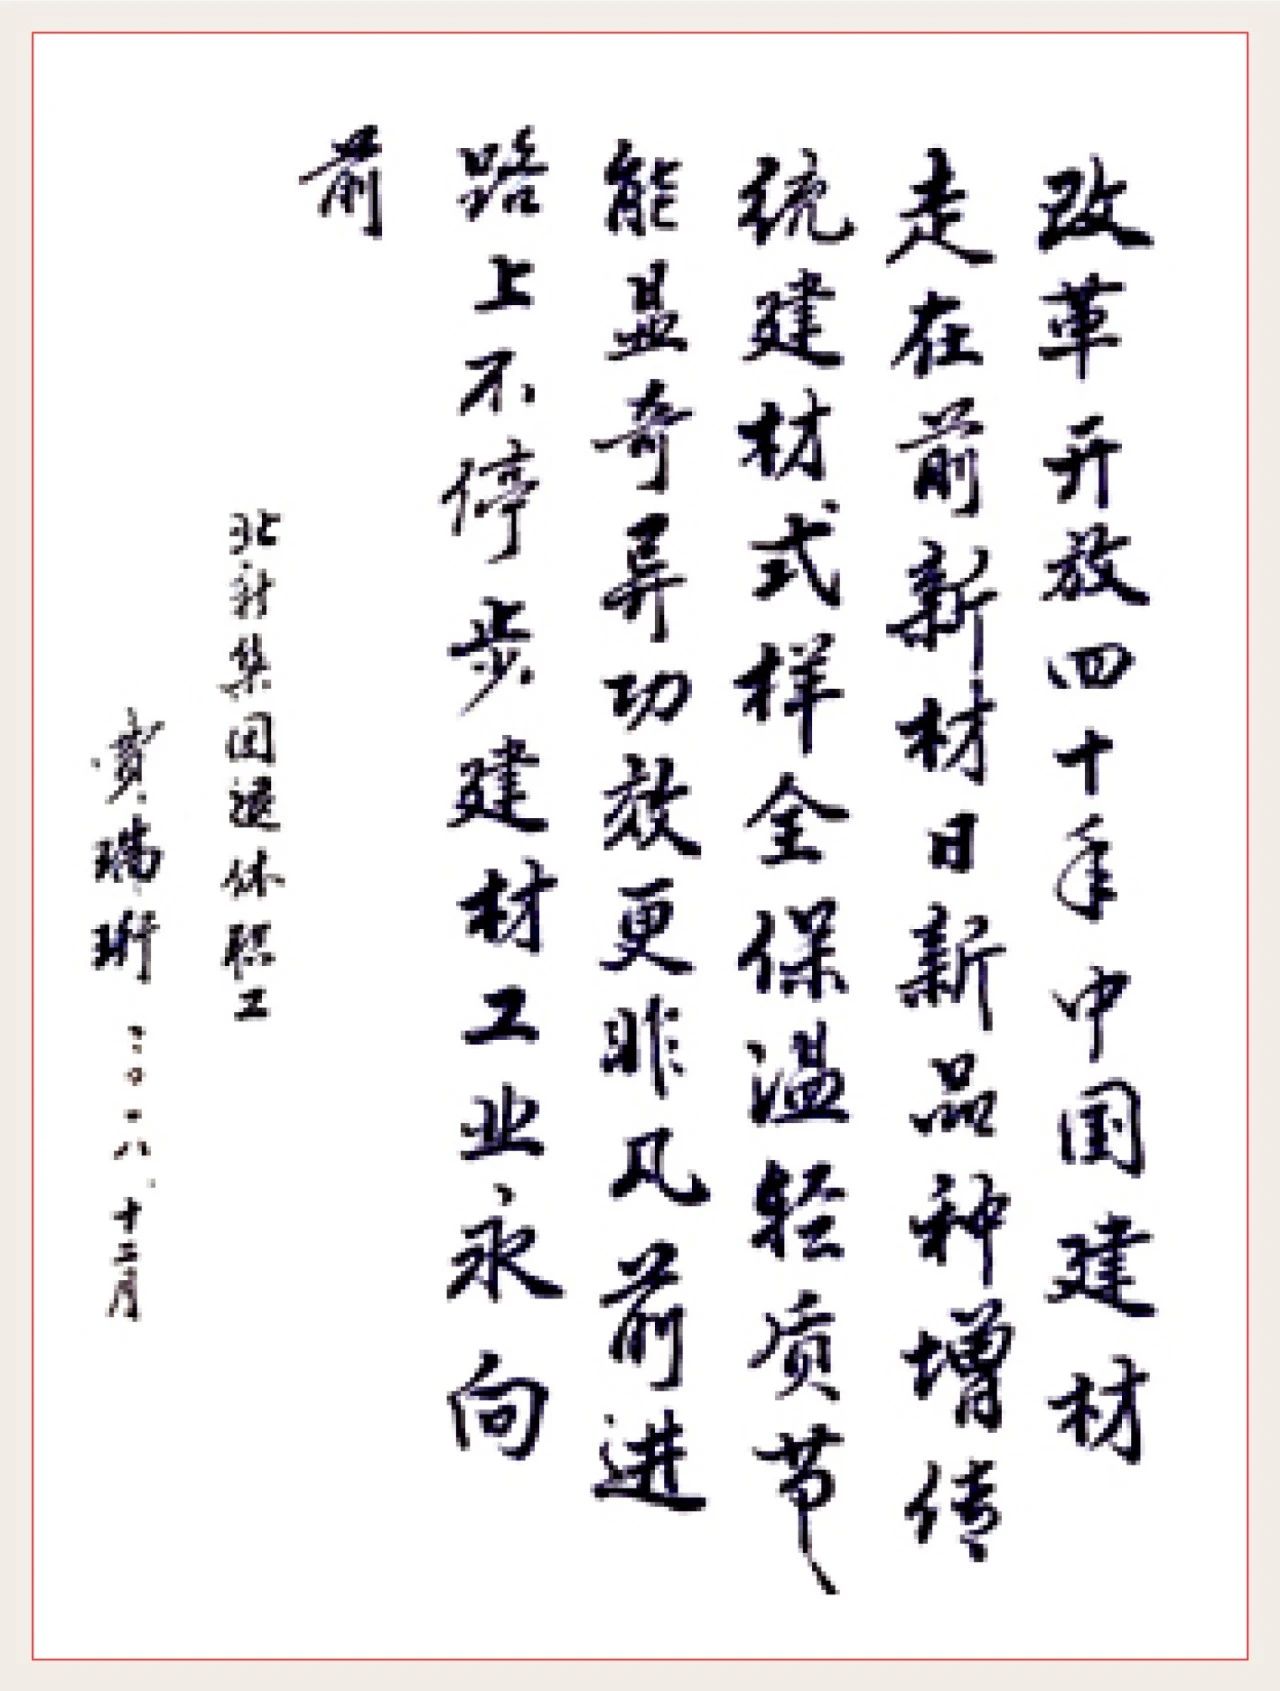 改革开放四十年中国建材
走在前新材日新品种增传
统建材式样全保温轻质节
能显奇异功效更非凡前进
路上不停步建材工业永向
前
北新集团退休职工
贾瑞珩 二〇一八、十二月